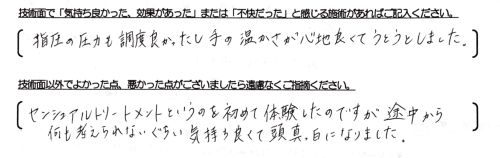 技術面で「気持ち良かった、効果があった」または「不快だった」と感じる施術があればご記入ください。
指圧の圧力も調度良かったし手の温かさが心地良くてうとうとしました。
技術面以外でよかった点、悪かった点がございましたら遠慮なくご指摘ください。
センシュアルトリートメントというのを初めて体験したのですが途中から
何も考えられないぐらい気持ち良くて頭真っ白になりました.